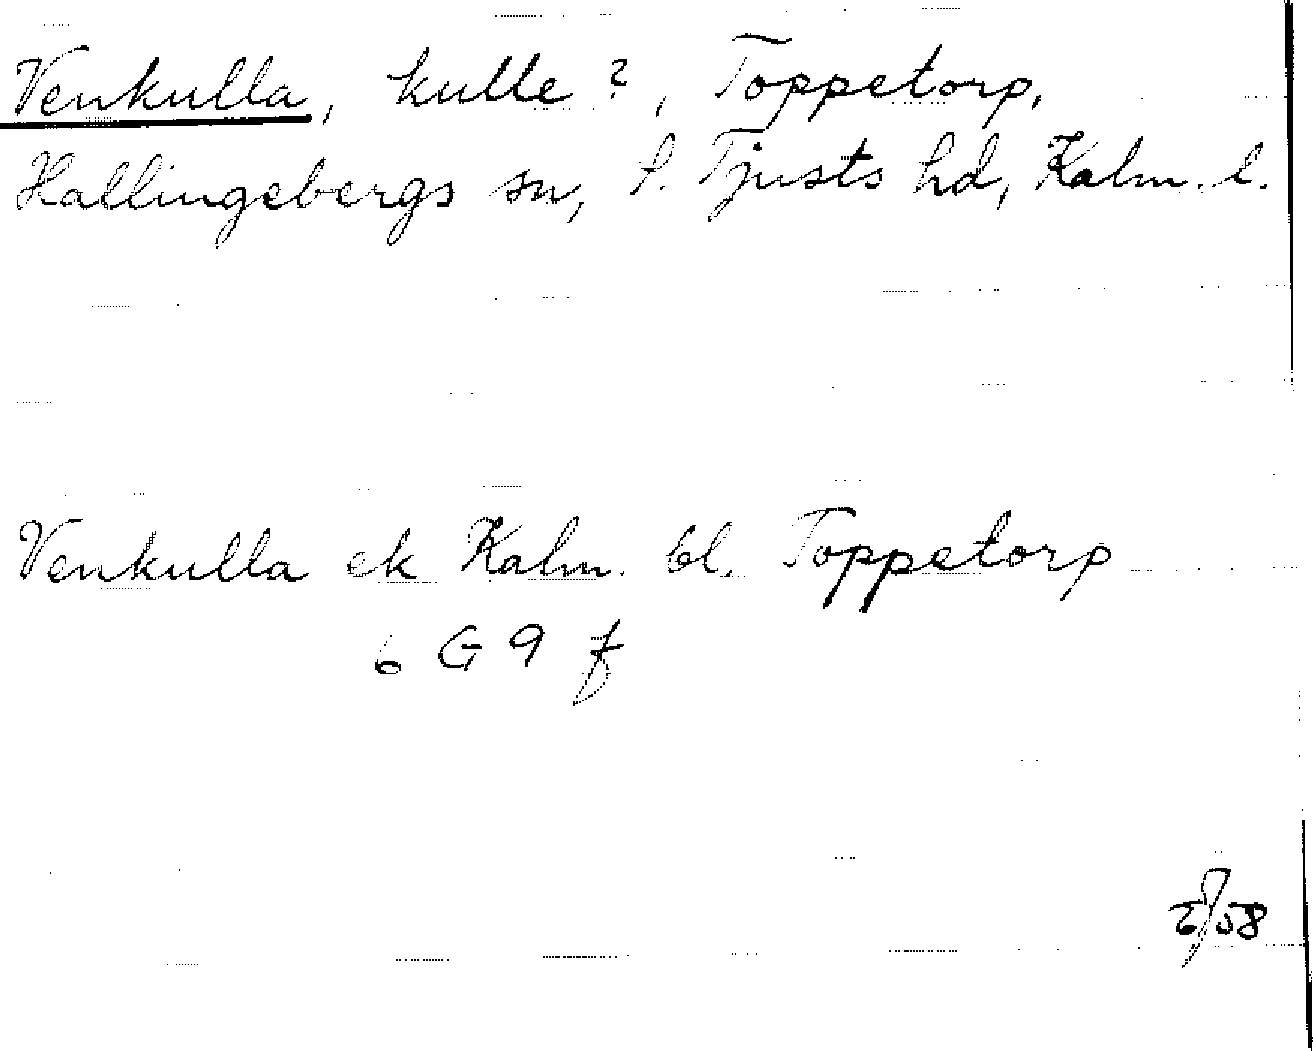 Venkulla, kulle?, Toppetorp,
Hallingebergs sn, S. Tjusts hd, Kalm. l.
Venkulla ek Kalm. bl. Toppetorp
6 G 9 f